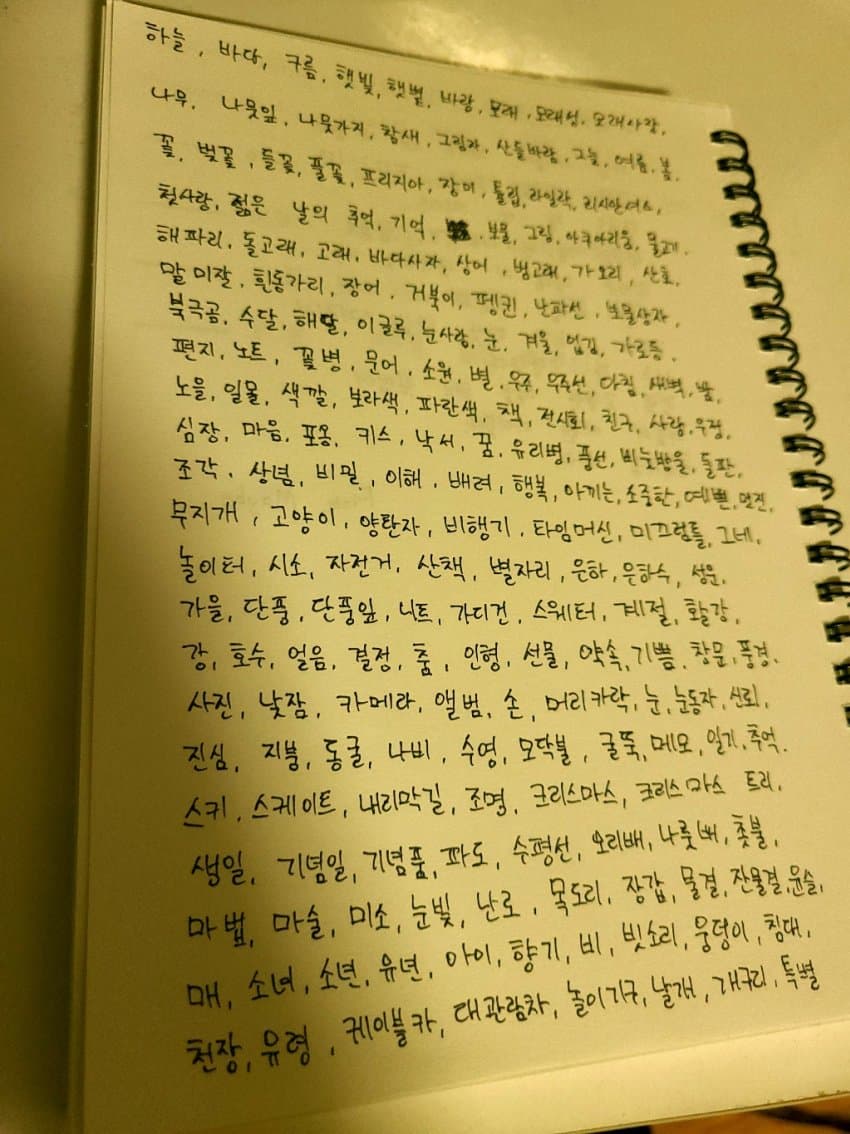 하늘, 바다, 구름, 햇빛, 햇볕, 바람, 모래, 모래성, 모래사장,
나무, 나뭇잎, 나뭇가지, 참새, 그림자, 산들바람, 그늘, 여름, 봄,
꽃, 벚꽃, 들꽃, 풀꽃, 프리지아, 장미, 튤립, 라일락, 리시안셔스,
첫사랑, 젊은 날의 추억, 기억, 보물, 그림, 아쿠아리움, 물고기.
해파리, 돌고래, 고래, 바다사자, 상어, 범고래, 가오리, 산호,
말미잘, 흰동가리, 장어, 거북이, 펭귄, 난파선, 보물상자,
북극곰, 수달, 해달, 이글루, 눈사람, 눈, 겨울, 입김, 가로등.
편지, 노트, 꽃병, 문어, 소원, 별, 우주, 우주선, 다짐, 새벽, 밤,
노을, 일몰, 색깔, 보라색, 파란색, 책, 전시회, 친구, 사랑, 우정,
심장, 마음, 포옹, 키스, 낙서, 꿈, 유리병, 풍선, 비눗방울, 들판,
조각, 상념, 비밀, 이해, 배려, 행복, 아끼는, 소중한, 예쁜, 멋진,
무지개, 고양이, 양탄자, 비행기, 타임머신, 미끄럼틀, 그네,
놀이터, 시소, 자전거, 산책, 별자리, 은하, 은하수, 성운,
가을, 단풍, 단풍잎, 니트, 가디건, 스웨터, 계절, 활강,
강, 호수, 얼음, 결정, 춤, 인형, 선물, 약속, 기쁨, 창문, 풍경.
사진, 낮잠, 카메라, 앨범, 손, 머리카락, 눈, 눈동자, 신뢰,
진심, 지붕, 동굴, 나비, 수영, 모닥불, 굴뚝, 메모, 일기, 추억.
스키, 스케이트, 내리막길, 조명, 크리스마스, 크리스마스 트리,
생일, 기념일, 기념품, 파도, 수평선, 오리배, 나룻배, 촛불,
마법, 마술, 미소, 눈빛, 난로, 목도리, 장갑, 물결, 잔물결, 윤슬,
매, 소녀, 소년, 유년, 아이, 향기, 비, 빗소리, 웅덩이, 침대,
천장, 유령, 케이블카, 대관람차, 놀이기구, 날개, 개구리, 특별